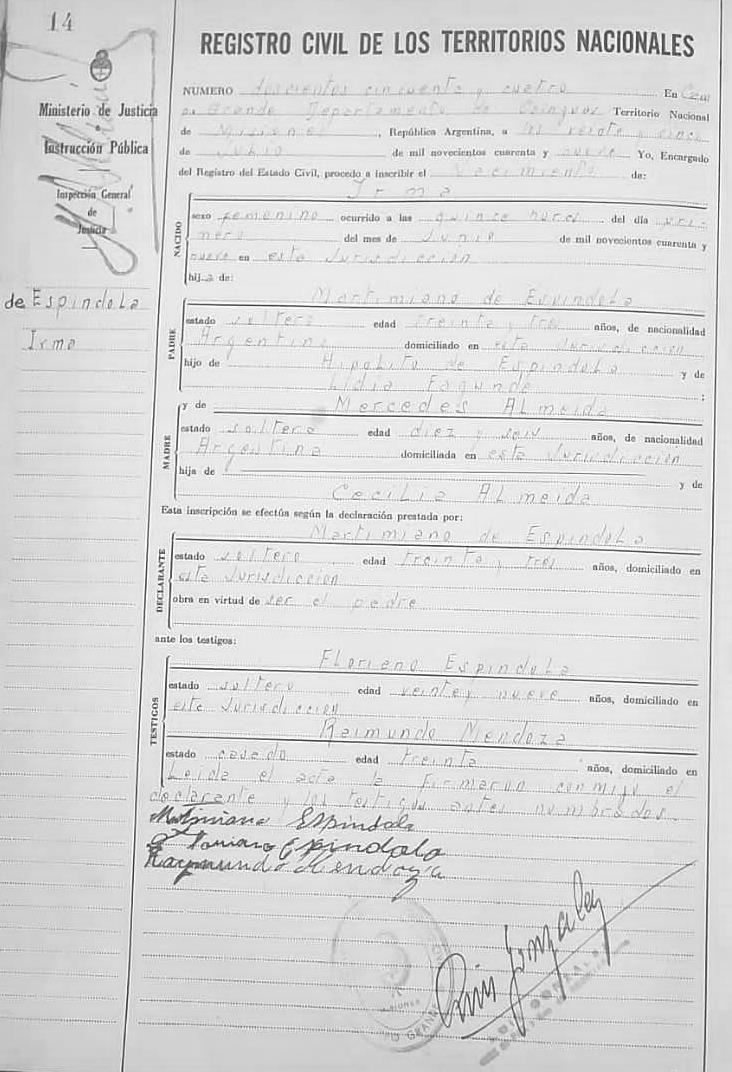 14
REGISTRO CIVIL DE LOS TERRITORIOS NACIONALES
Ministerio de Justicia
e
Instrucción Pública
Inspección General
de
Justicia
de Espindola
Irma
NUMERO doscientos cincuenta y cuatro En Cam
po Grande Departamento de Cainguas Territorio Nacional
de Misiones, República Argentina, a los veinte y cinco
de Julio de mil novecientos cuarenta y nueve Yo, Encargado
del Registro del Estado Civil, procedo a inscribir el Nacimiento de:
Irma
NACIDO
sexo femenino ocurrido a las quince horas del día pri-
mero del mes de Junio de mil novecientos cuarenta y
nueve en esta Jurisdiccion
hija de:
Martimiano de Espindola
PADRE
estado soltero edad treinta y tres años, de nacionalidad
Argentino domiciliado en esta Jurisdiccion
hijo de Hipolito de Espindola y de
Lidia Fagunde ;
y de Mercedes Almeida
MADRE
estado soltera edad diez y seis años, de nacionalidad
Argentina domiciliada en esta Jurisdiccion
hija de y de
Cecilia Almeida
Esta inscripción se efectúa según la declaración prestada por:
Martimiano de Espindola
DECLARANTE
estado soltero edad treinta y tres años, domiciliado en
esta Jurisdiccion
obra en virtud de ser el padre
ante los testigos:
Floriano Espindola
TESTIGOS
estado soltero edad veinte y nueve años, domiciliado en
esta Jurisdiccion
Raimundo Mendoza
estado casado edad treinta años, domiciliado en
Leida el acta la firmaron conmigo el
declarante y los testigos antes nombrados.
Espindola
Espindola
Raymundo Mendoza
Luis Gonzalez
GRANDE
MISIONES